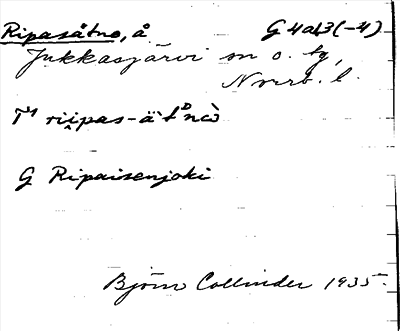 Ripasätno, å G 4a,3(-4)
Jukkasjärvi sn o. tg,
Norrb. l.
riipas-ä'tnò
G Ripaisenjoki
Björn Collinder 1935.